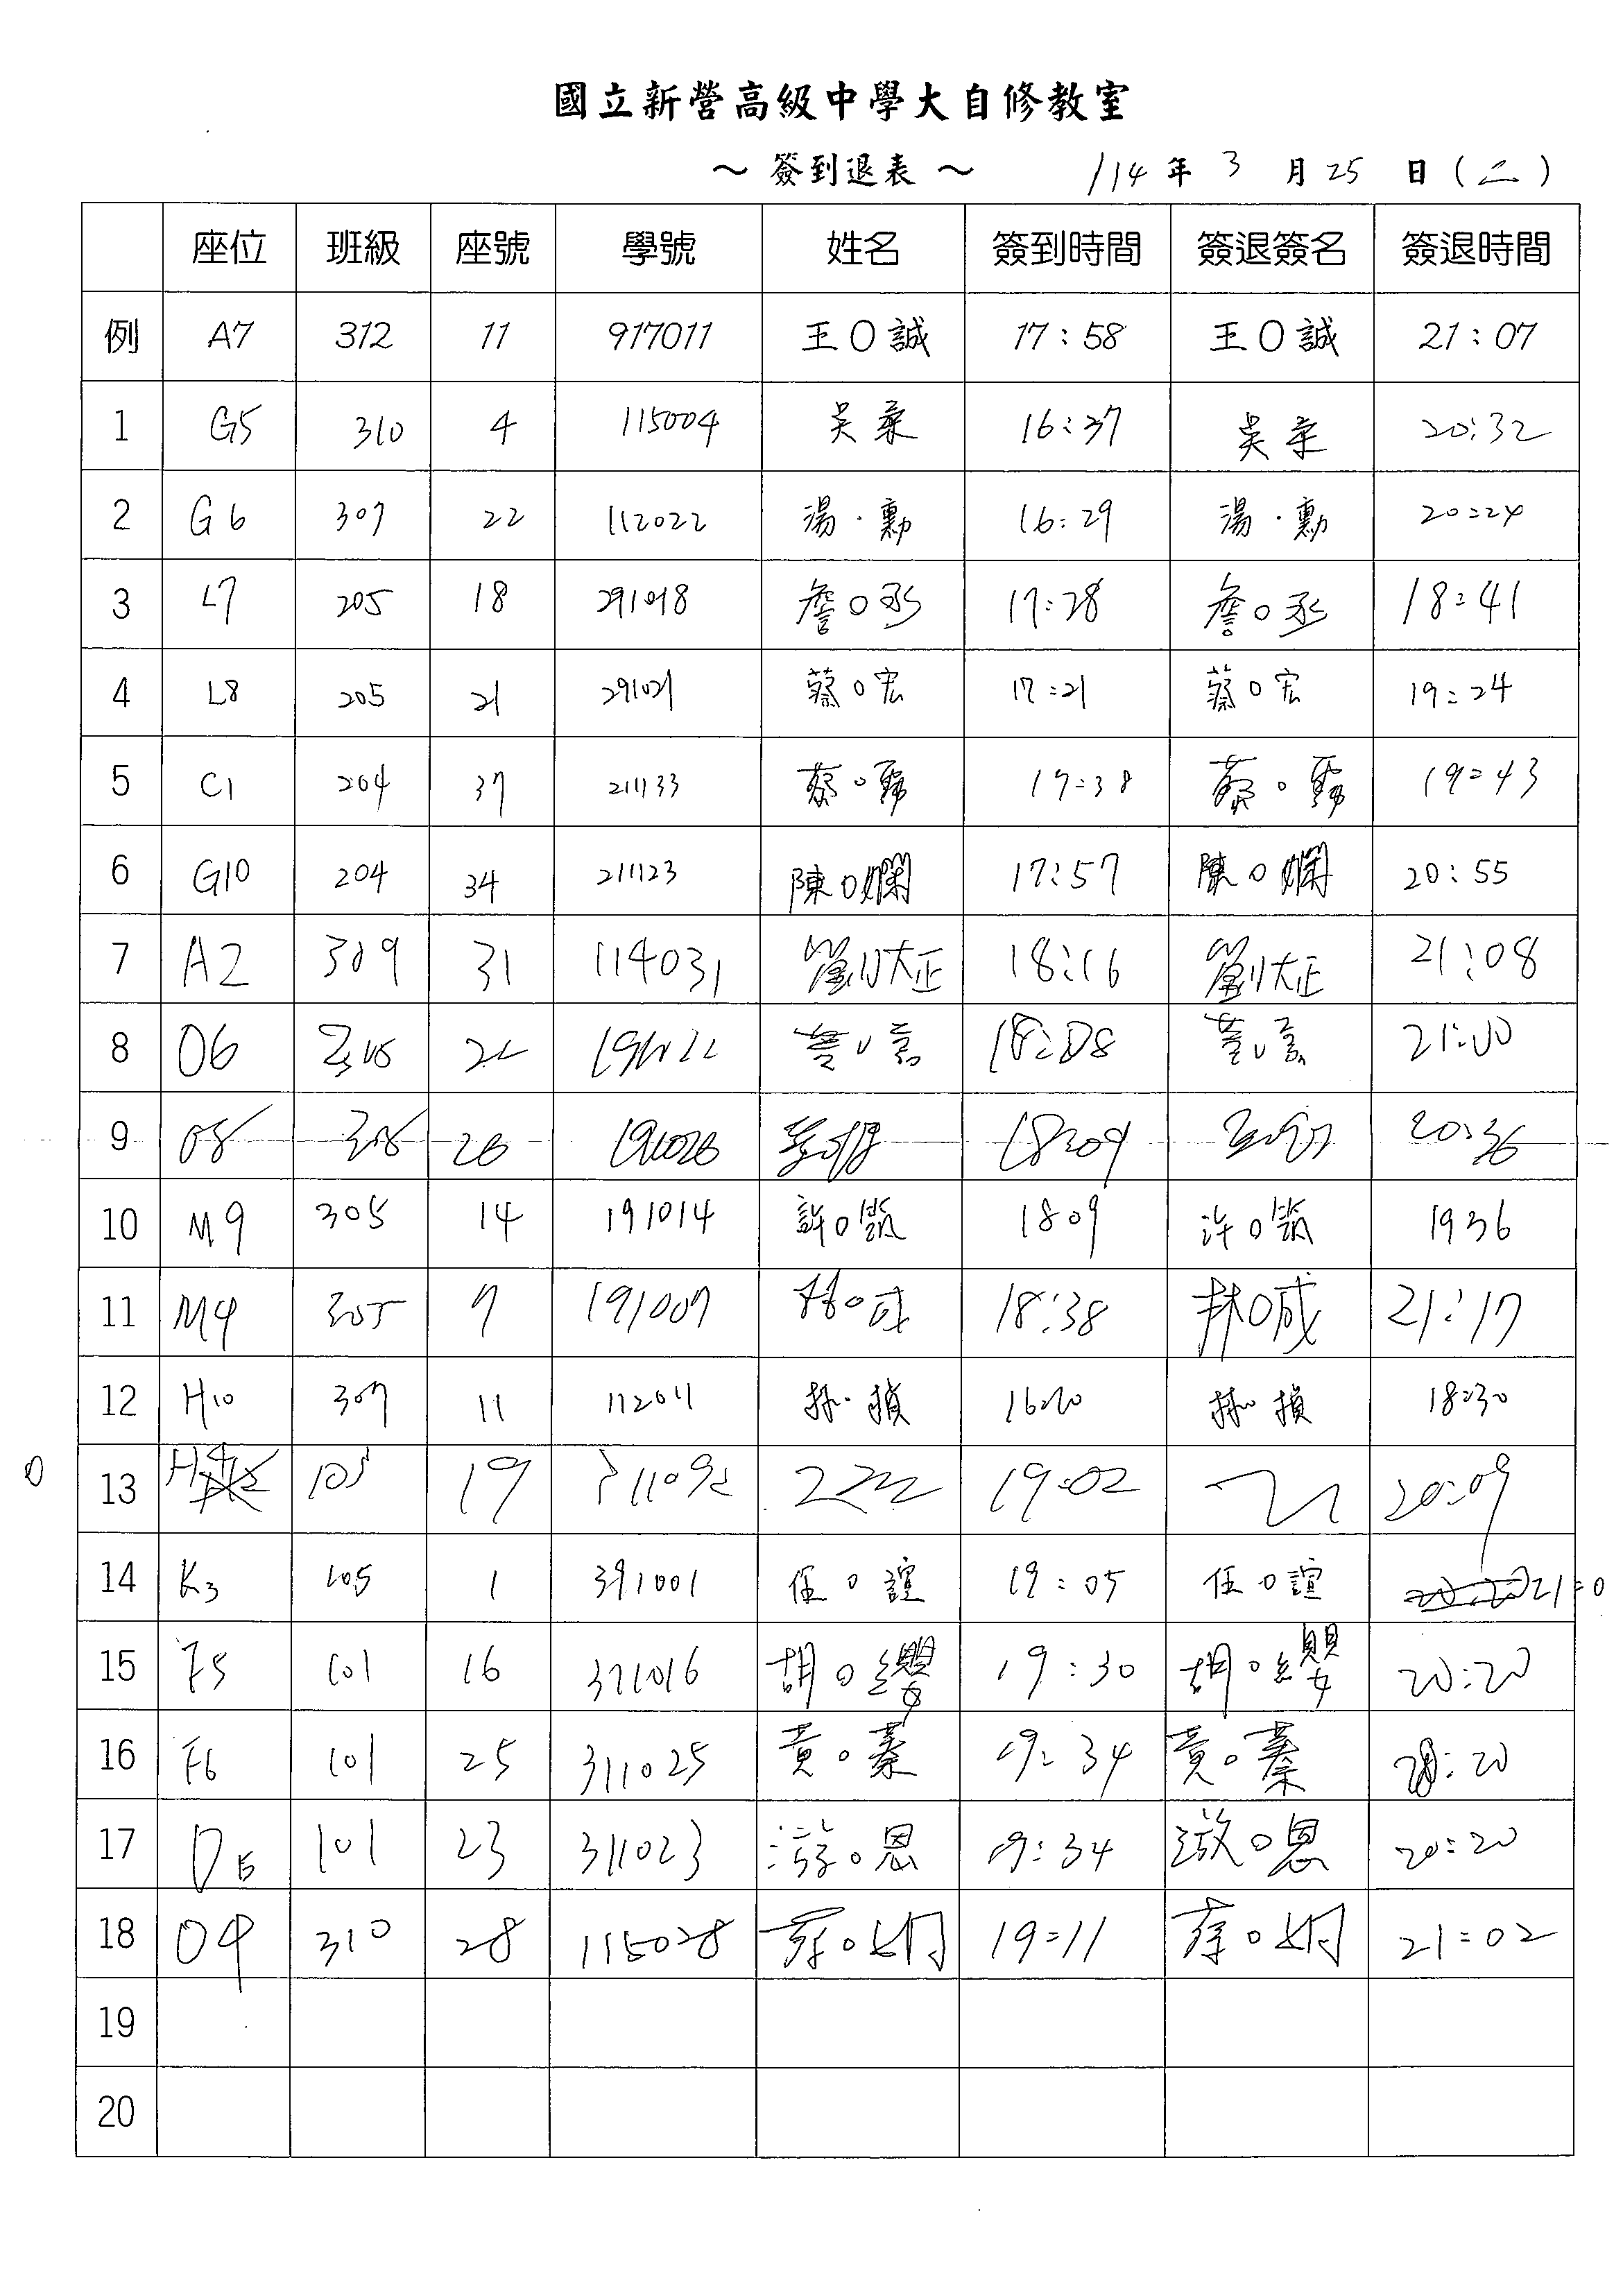 國立新營高級中學大自修教室
～ 簽到退表 ～ 114 年 3 月 25 日 (二)
座位 班級 座號 學號 姓名 簽到時間 簽退簽名 簽退時間
例 A7 312 11 917011 王〇誠 17:58 王〇誠 21:07
1 G5 310 4 115004 吳 16:37 吳 20:32
2 G6 307 22 112022 湯·勳 16:29 湯·勳 20:24
3 L7 205 18 291018 詹〇丞 17:28 詹〇丞 18:41
4 L8 205 21 291021 蔡〇宏 17:21 蔡〇宏 19:24
5 C1 204 37 211133 蔡〇 17:38 蔡〇 19:43
6 G10 204 34 211123 陳〇嫻 17:57 陳〇嫻 20:55
7 A2 309 31 114031 劉大正 18:16 劉大正 21:08
8 O6 18:08 21:00
9 O8 308 26 191026 18:09 20:36
10 M9 305 14 191014 許〇 1809 许〇 1936
11 M4 305 7 191007 林〇成 18:38 林〇成 21:17
12 H10 307 11 112011 林 16:20 林 18:30
0 13 105 19 19:02 20:09
14 K3 105 1 391001 任〇誼 19:05 任〇誼 21:0
15 F5 101 16 371016 胡〇纓 19:30 胡〇纓 20:20
16 F6 101 25 311025 黃〇蓁 19:34 黃〇蓁 20:20
17 D5 101 23 311023 游〇恩 19:34 游〇恩 20:20
18 O4 310 28 115028 19:11 21:02
19
20